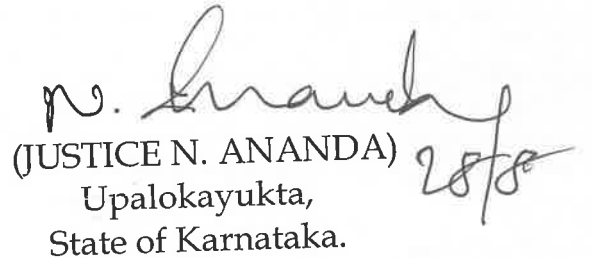 N. Ananda
(JUSTICE N. ANANDA) 28/8
Upalokayukta,
State of Karnataka.